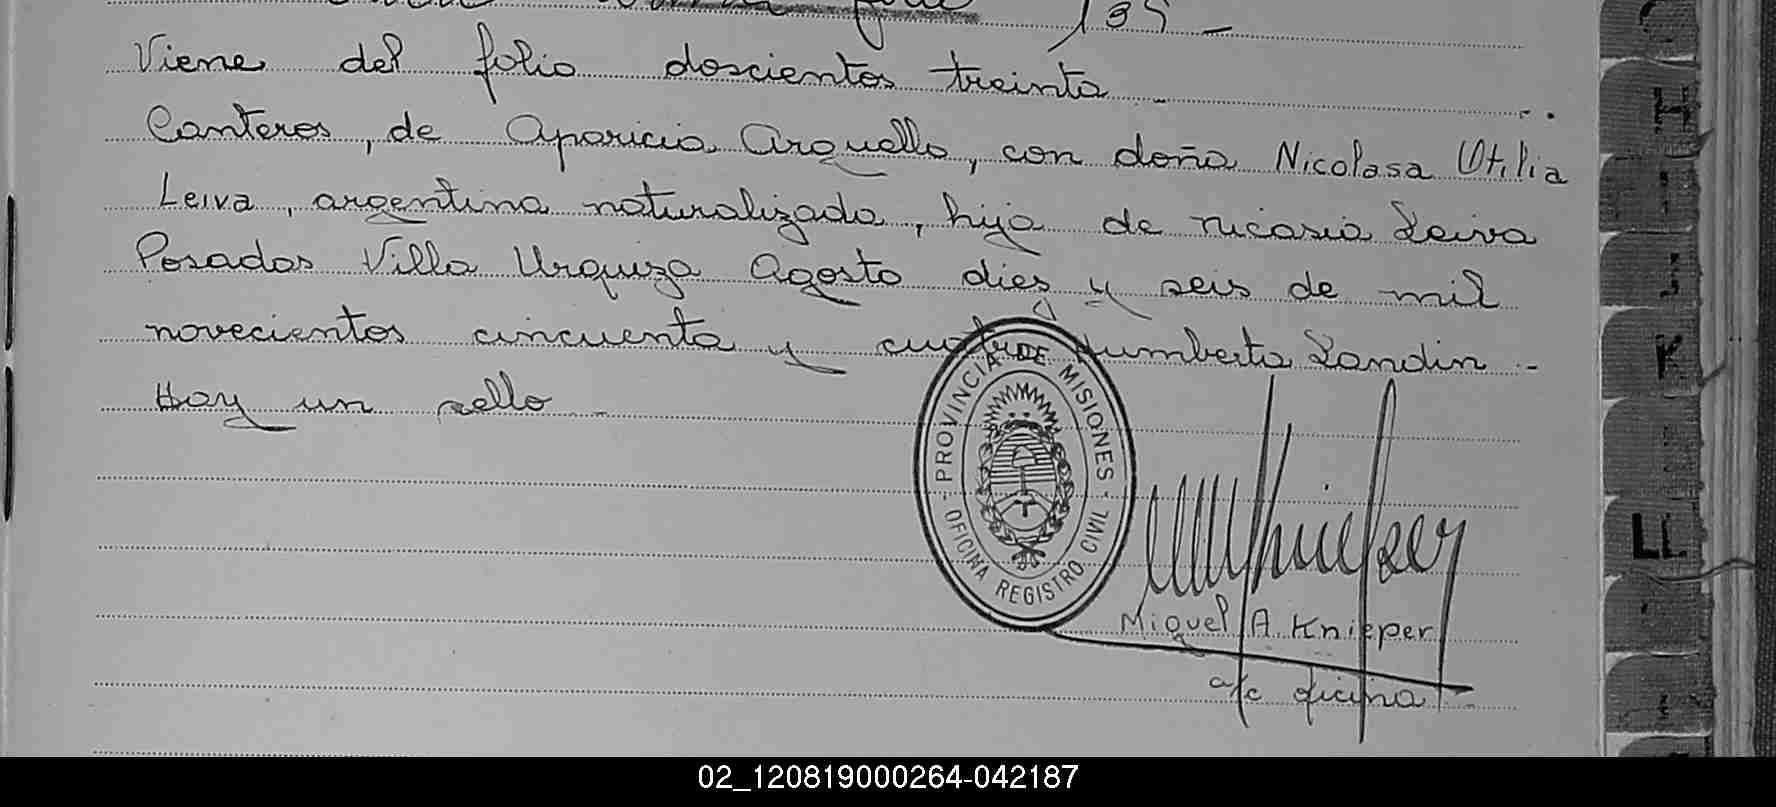 135 -
Viene del folio doscientos treinta - - .
Canteros, de Aparicia Arguello, con doña Nicolasa Otilia
Leiva, argentina naturalizada, hija de Nicasia Leiva
Posadas Villa Urquiza Agosto dies y seis de mil
novecientos cincuenta y cuatro Humberto Landin -
Hay un sello -
PROVINCIA DE MISIONES
- OFICINA REGISTRO CIVIL -
Miguel A. Knieper
a/c oficina -
H
I
J
K
LL
02_120819000264-042187